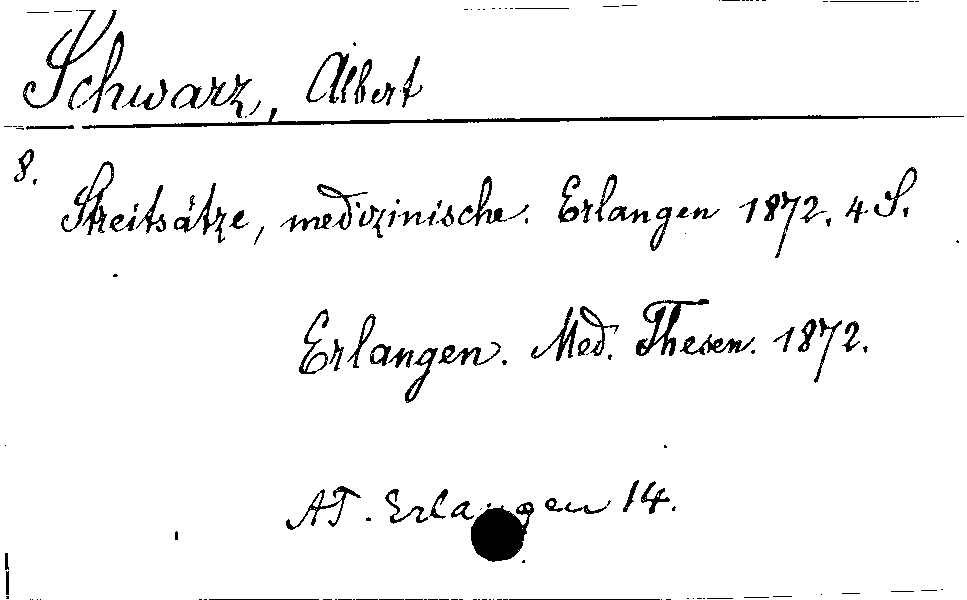 Schwarz, Albert
8.
Streitsätze, medizinische. Erlangen 1872. 4 S.
Erlangen. Med. Thesen. 1872.
AT. Erlangen 14.